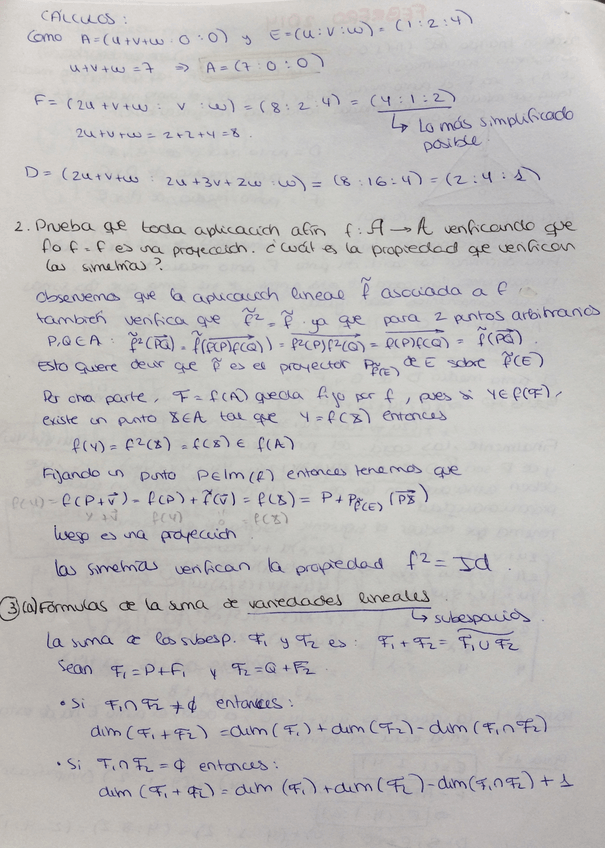 CÁLCULOS:
Como A=(u+v+w:0:0) y E=(u:v:w)=(1:2:4)
u+v+w=7 ⇒ A=(7:0:0)
F=(2u+v+w: v :w)=(8:2:4)=(4:1:2)
2u+v+w=2+2+4=8. ↳ Lo más simplificado
posible.
D=(2u+v+w: 2u+3v+2w:w)=(8:16:4)=(2:4:1)
2. Prueba que toda aplicación afín f: A → A verificando que
f∘f=f es una proyección. ¿Cuál es la propiedad que verifican
las simetrías?
Observemos que la aplicación lineal f̃ asociada a f,
también verifica que f̃²=f̃ ya que para 2 puntos arbitrarios
P,Q∈A: f̃²(PQ)=f̃(f(P)f(Q))=f²(P)f²(Q)=f(P)f(Q)=f̃(PQ)
Esto quiere decir que f̃ es el proyector P_f̃(E) de E sobre f̃(E)
Por otra parte, F=f(A) queda fijo por f, pues si Y∈f(F),
existe un punto X∈A tal que Y=f(X) entonces
f(Y)=f²(X)=f(X)∈f(A)
Fijando un punto P∈Im(f) entonces tenemos que
f(P+v)=f(P)+f̃(v)=f(X)=P+P_f̃(E)(PX)
x+v f(Y) f(X)
luego es una proyección
Las simetrías verifican la propiedad f²=Id.
3 (a) Fórmulas de la suma de variedades lineales
↳ subespacios.
La suma de los subesp. F₁ y F₂ es: F₁+F₂=F₁∪F₂
Sean F₁=P+F₁ y F₂=Q+F₂
• Si F₁∩F₂≠∅ entonces:
dim(F₁+F₂)=dim(F₁)+dim(F₂)-dim(F₁∩F₂)
• Si F₁∩F₂=∅ entonces:
dim(F₁+F₂)=dim(F₁)+dim(F₂)-dim(F₁∩F₂)+1